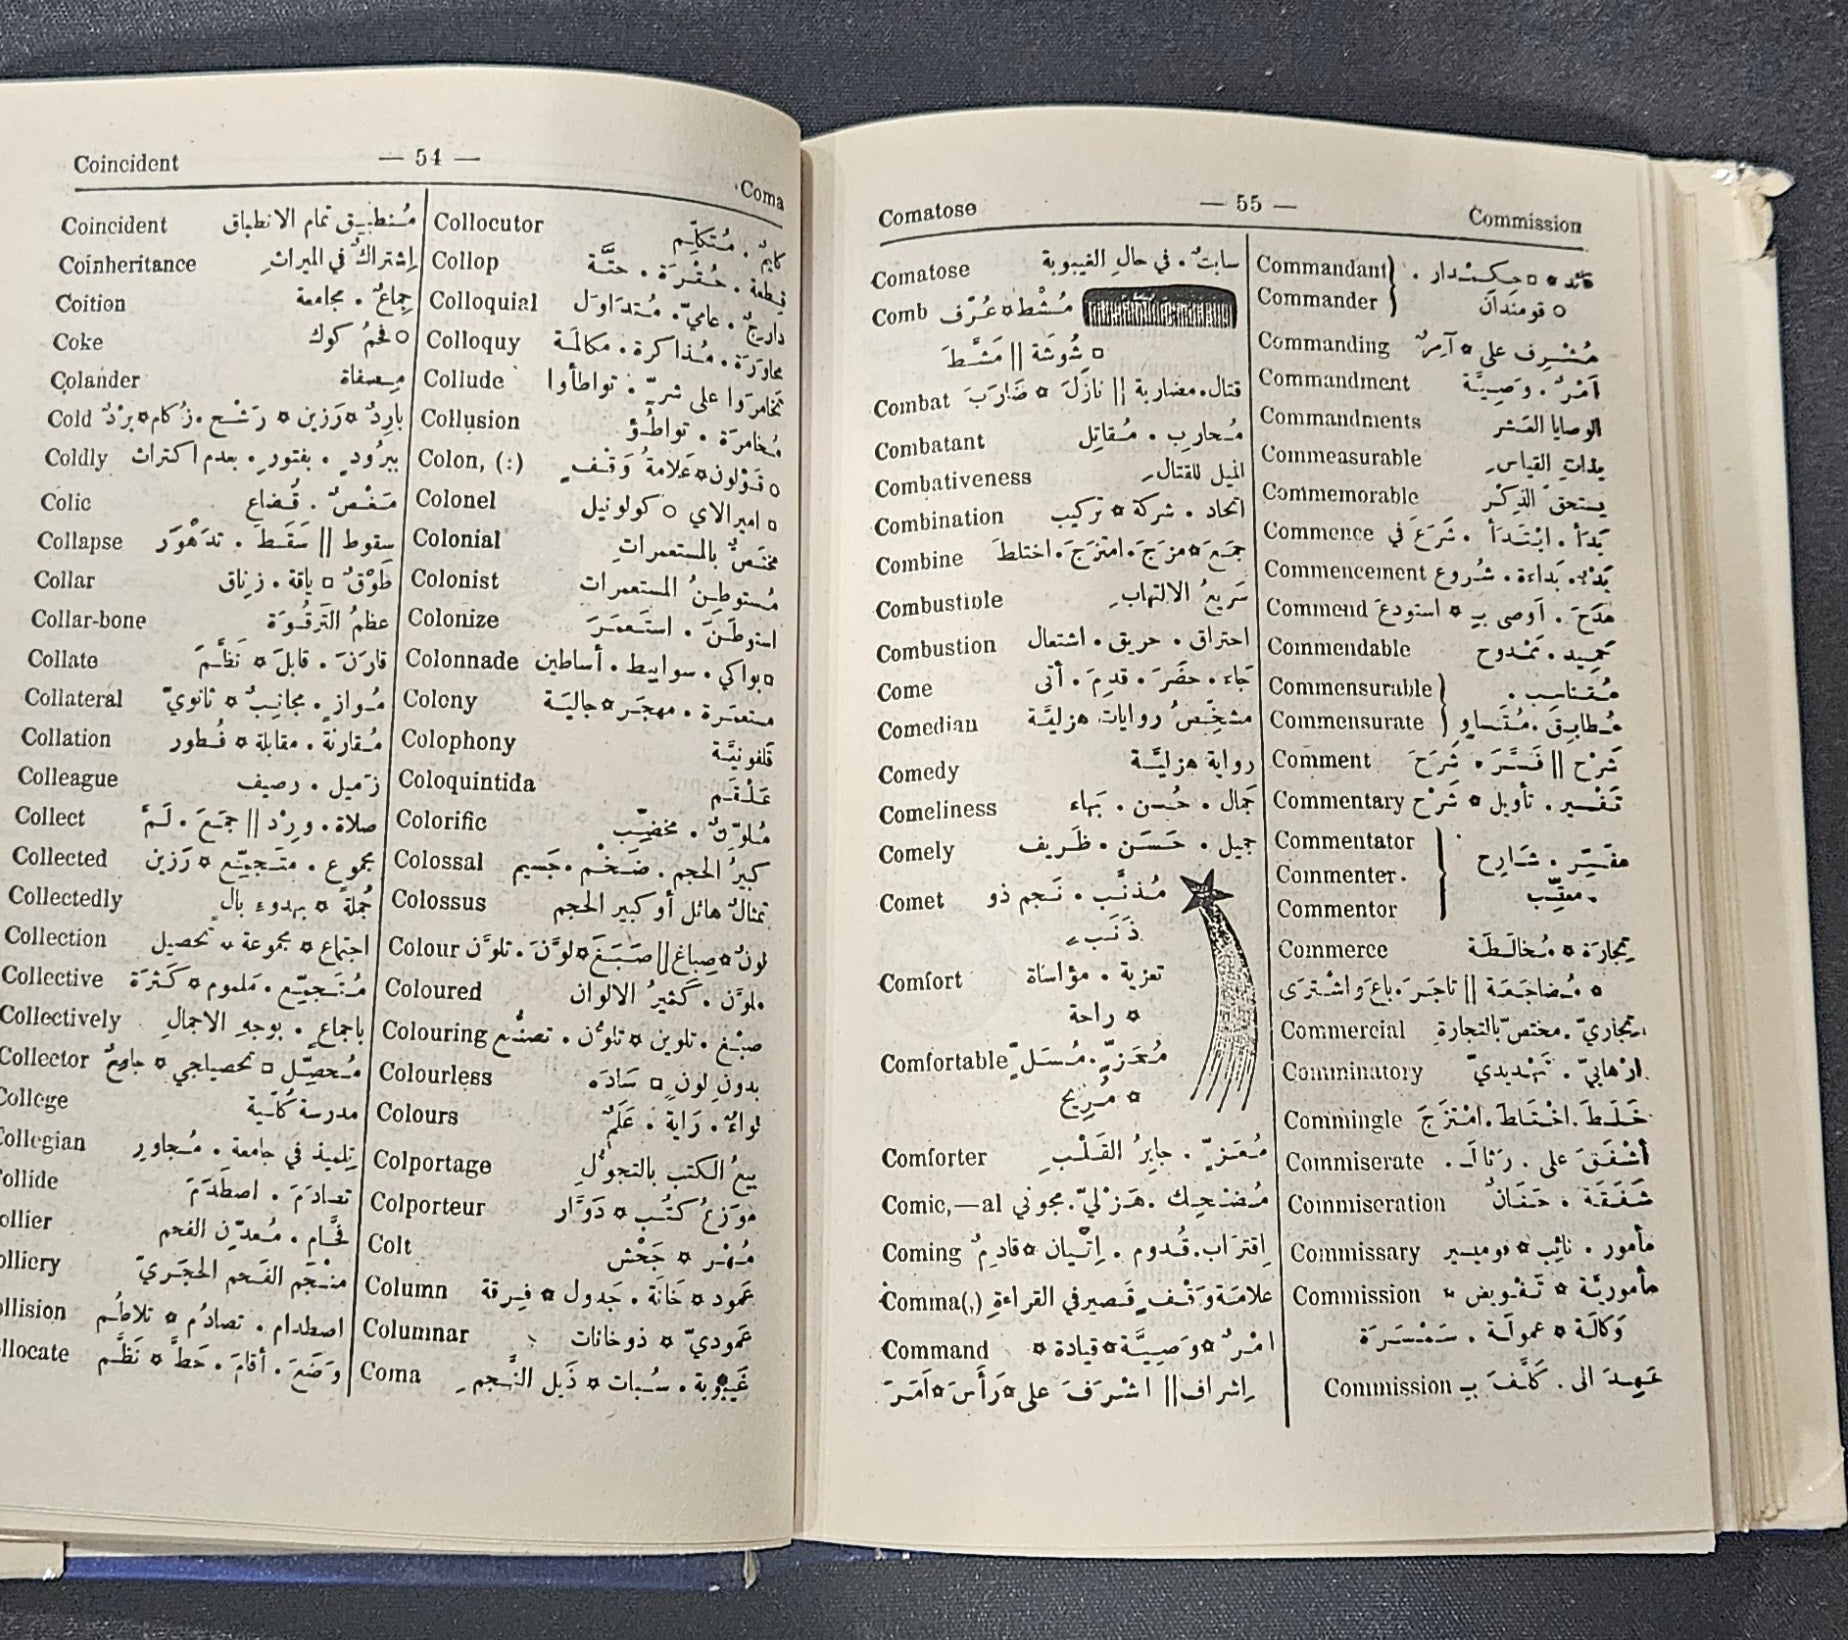 Coincident — 54 — Coma
Coincident مُنطبِق تمام الانطباق
Coinheritance إشتراكٌ في الميراثِ
Coition جِماعٌ . مجامعة
Coke ○ فحمُ كوك
Colander مِصفاة
Cold باردٌ ¤ رَزين ¤ رَشْح . زُكام ¤ بَرْدٌ
Coldly ببرُودٍ . بفتورٍ . بعدم اكتراث
Colic مَغْصٌ . قُضاع
Collapse سقوط || سَقَطَ . تدَهْوَر
Collar طَوْقٌ □ ياقة . زِناق
Collar-bone عظمُ التَرقُوَة
Collate قارَنَ . قابلَ ¤ نَظَّمَ
Collateral مُوازٍ . مجانِبٌ ¤ ثانويّ
Collation مُقارنة . مقابلة ¤ فُطور
Colleague زَميل . رصيف
Collect صلاة . وِرْد || جمَعَ . لَمَّ
Collected مجموع . متَجمِّع ¤ رَزين
Collectedly جُملةً ¤ بهدوء بالٍ
Collection اجتماع ¤ مجموعة ¤ تحصيل
Collective مُتَجمِّع . مَلموم ¤ كَثرَة
Collectively باجماعٍ . بوجهِ الاجمالِ
Collector مُحصِّل □ تحصيلجي ¤ جامعٌ
College مدرسة كُلّية
Collegian تلميذ في جامعة . مُجاوِر
ollide تصادَمَ . اصطَدَمَ
ollier فحَّام . مُعدِّن الفحم
olliery منْجَم الفَحم الحجَريّ
ollision اصطدام . تصادُم ¤ تلاطُم
ollocate وَضَعَ . أقامَ . حَطَّ ¤ نَظَّم
Collocutor كليمٌ . مُتكلِّم
Collop قِطعة . حُفْرَة . حتَّة
Colloquial دارِجٌ . عاميّ . مُتدَاوَل
Colloquy محاوَرَة . مُذاكرة . مكالَمة
Collude تَخامَرَوا على شرٍّ . تواطأوا
Collusion مُخامرَة . تواطُؤ
Colon, (:) ○ قَوْلون ¤ عَلامةُ وَقْفٍ
Colonel □ اميرالاي ○ كولونيل
Colonial مختَصٌّ بالمستعمراتِ
Colonist مُستوطِنُ المستعمرات
Colonize استوطَنَ . استَعمَرَ
Colonnade □ بواكي . سوابيط . أساطين
Colony مستعمَرة . مهجَر ¤ جاليَة
Colophony قلفونيَّة
Coloquintida عَلْقَم
Colorific مُلوِّنٌ . مخضِّب
Colossal كبيرُ الحجم . ضَخْم . جَسيم
Colossus تمثالٌ هائل أو كبير الحجم
Colour لونٌ ¤ صِباغ || صَبَغَ ¤ لوَّنَ . تلوَّن
Coloured ملوَّن . كَثيرُ الالوان
Colouring صبْغ . تلوين ¤ تلوُّن . تصنُّع
Colourless بدون لونٍ □ سَادَه
Colours لواءٌ . رَاية . عَلَمٌ
Colportage بيعُ الكتب بالتجوُّلِ
Colporteur موَزعُ كتُب ¤ دَوَّار
Colt مُهْر ¤ جَحْش
Column عَمود ¤ خَانَة . جَدول ¤ فِرقة
Columnar عَموديّ ¤ ذو خانات
Coma غَيْبوبة . سُبات ¤ ذَيل النَّجمِ
Comatose — 55 — Commission
Comatose سابتٌ . في حالِ الغيبوبة
Comb مُشْط ¤ عُرّف
□ شُوشَة || مَشَّطَ
Combat قتال . مضاربة || نازَلَ ¤ ضَارَبَ
Combatant مُحارِب . مُقاتِل
Combativeness الميل للقتالِ
Combination اتحاد . شركة ¤ تركيب
Combine جمَعَ ¤ مزجَ . امتزجَ . اختلطَ
Combustible سَريعُ الالتهابِ
Combustion احتراق . حريق . اشتعال
Come جَاء . حضَرَ . قدِمَ . أتى
Comedian مشخِّصُ روايات هزليَّة
Comedy رواية هزليَّة
Comeliness جَمال . حُسن . بَهاء
Comely جميل . حَسَن . ظَريف
Comet مُذنَّب . نَجم ذو
ذَنَبٍ
Comfort تعزية . مؤاساة
¤ راحة
Comfortable مُعَزٍّ . مُسَلٍّ
¤ مُرِيح
Comforter مُعَزٍّ . جابِرُ القَلْبِ
Comic,—al مُضحِك . هَزْليّ . مجوني
Coming اِقتراب . قُدوم . إتْيان ¤ قادِمٌ
Comma(,) علامَة وَقْفٍ قَصيرٍ في القراءةِ
Command امْرٌ ¤ وصِيَّة ¤ قيادة ¤
إشراف || اشْرَفَ على ¤ رَأَسَ ¤ اَمَرَ
Commandant قائد ¤ □ حِكِمْدار .
Commander ○ قومندان
Commanding مُشْرِف على ¤ آمِرٌ
Commandment اَمْرٌ . وَصِيَّة
Commandments الوصايا العَشر
Commeasurable بذاتِ القياسِ
Commemorable يستحق الذِكْر
Commence بَدَأ . ابْتَدَأ . شَرَعَ في
Commencement بَدْء . بَداءة . شُروع
Commend مَدَحَ . اَوصى بِـ ¤ استودعَ
Commendable حَمِيد . مَمْدوح
Commensurable مُتناسِب .
Commensurate مُطابِق . مُتَساوٍ
Comment شَرْح || فَسَّرَ . شَرَحَ
Commentary تَفْسير . تأويل ¤ شَرْح
Commentator
Commenter. مفَسِّر . شَارِح
Commentor . معقِّب
Commerce تِجارَة ¤ مُخالَطَة
¤ . مُضاجَعَة || تاجَرَ . باعَ وَاشْتَرَى
Commercial تجاريّ . مختصّ بالتجارةِ
Comminatory ارْهابيّ . تَهْديديّ
Commingle خَلَطَ . اخْتَلطَ . امْتزَجَ
Commiserate أشْفَقَ على . رَثا لَـ .
Commiseration شَفَقَة . حَنَانٌ
Commissary مأمور . نائِب ¤ قوميسير
Commission مأموريَّة ¤ تَفْويض ¤
وَكالَة ¤ عمولَة . سَمْسَرَة
Commission عَهِدَ الى . كَلَّفَ بِـ